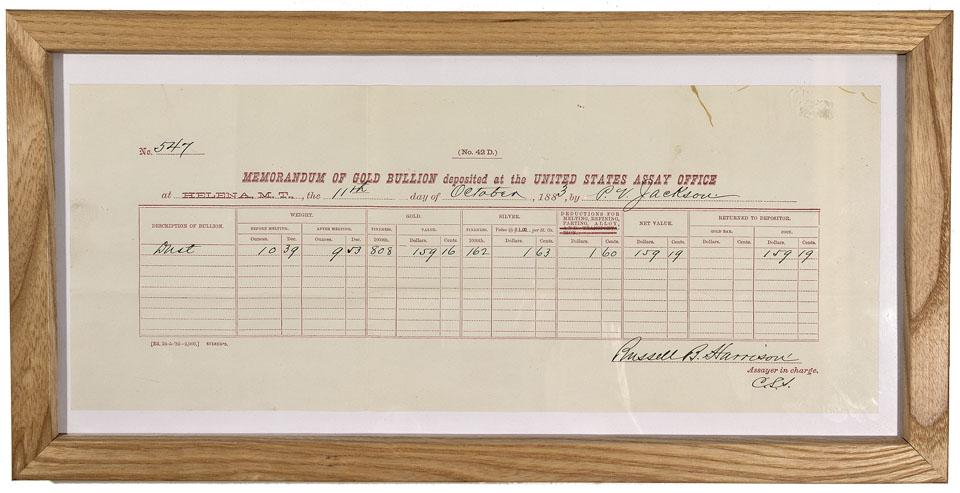 No. 547
(No. 42 D.)
MEMORANDUM OF GOLD BULLION deposited at the UNITED STATES ASSAY OFFICE
at HELENA, M.T., the 11th day of October, 1883, by P. V. Jackson
DESCRIPTION OF BULLION. WEIGHT. GOLD. SILVER. DEDUCTIONS FOR MELTING, REFINING, PARTING, ALLOY, NET VALUE. RETURNED TO DEPOSITOR.
BEFORE MELTING. AFTER MELTING. FINENESS. VALUE. FINENESS. Value @ $1.00 per St. Oz. GOLD BAR. COIN.
Ounces. Dec. Ounces. Dec. 1000th. Dollars. Cents. 1000th. Dollars. Cents. Dollars. Cents. Dollars. Cents. Dollars. Cents. Dollars. Cents.
Dust 10 39 9 53 808 159 16 162 1 63 1 60 159 19 159 19
Russell B. Harrison
Assayer in charge.